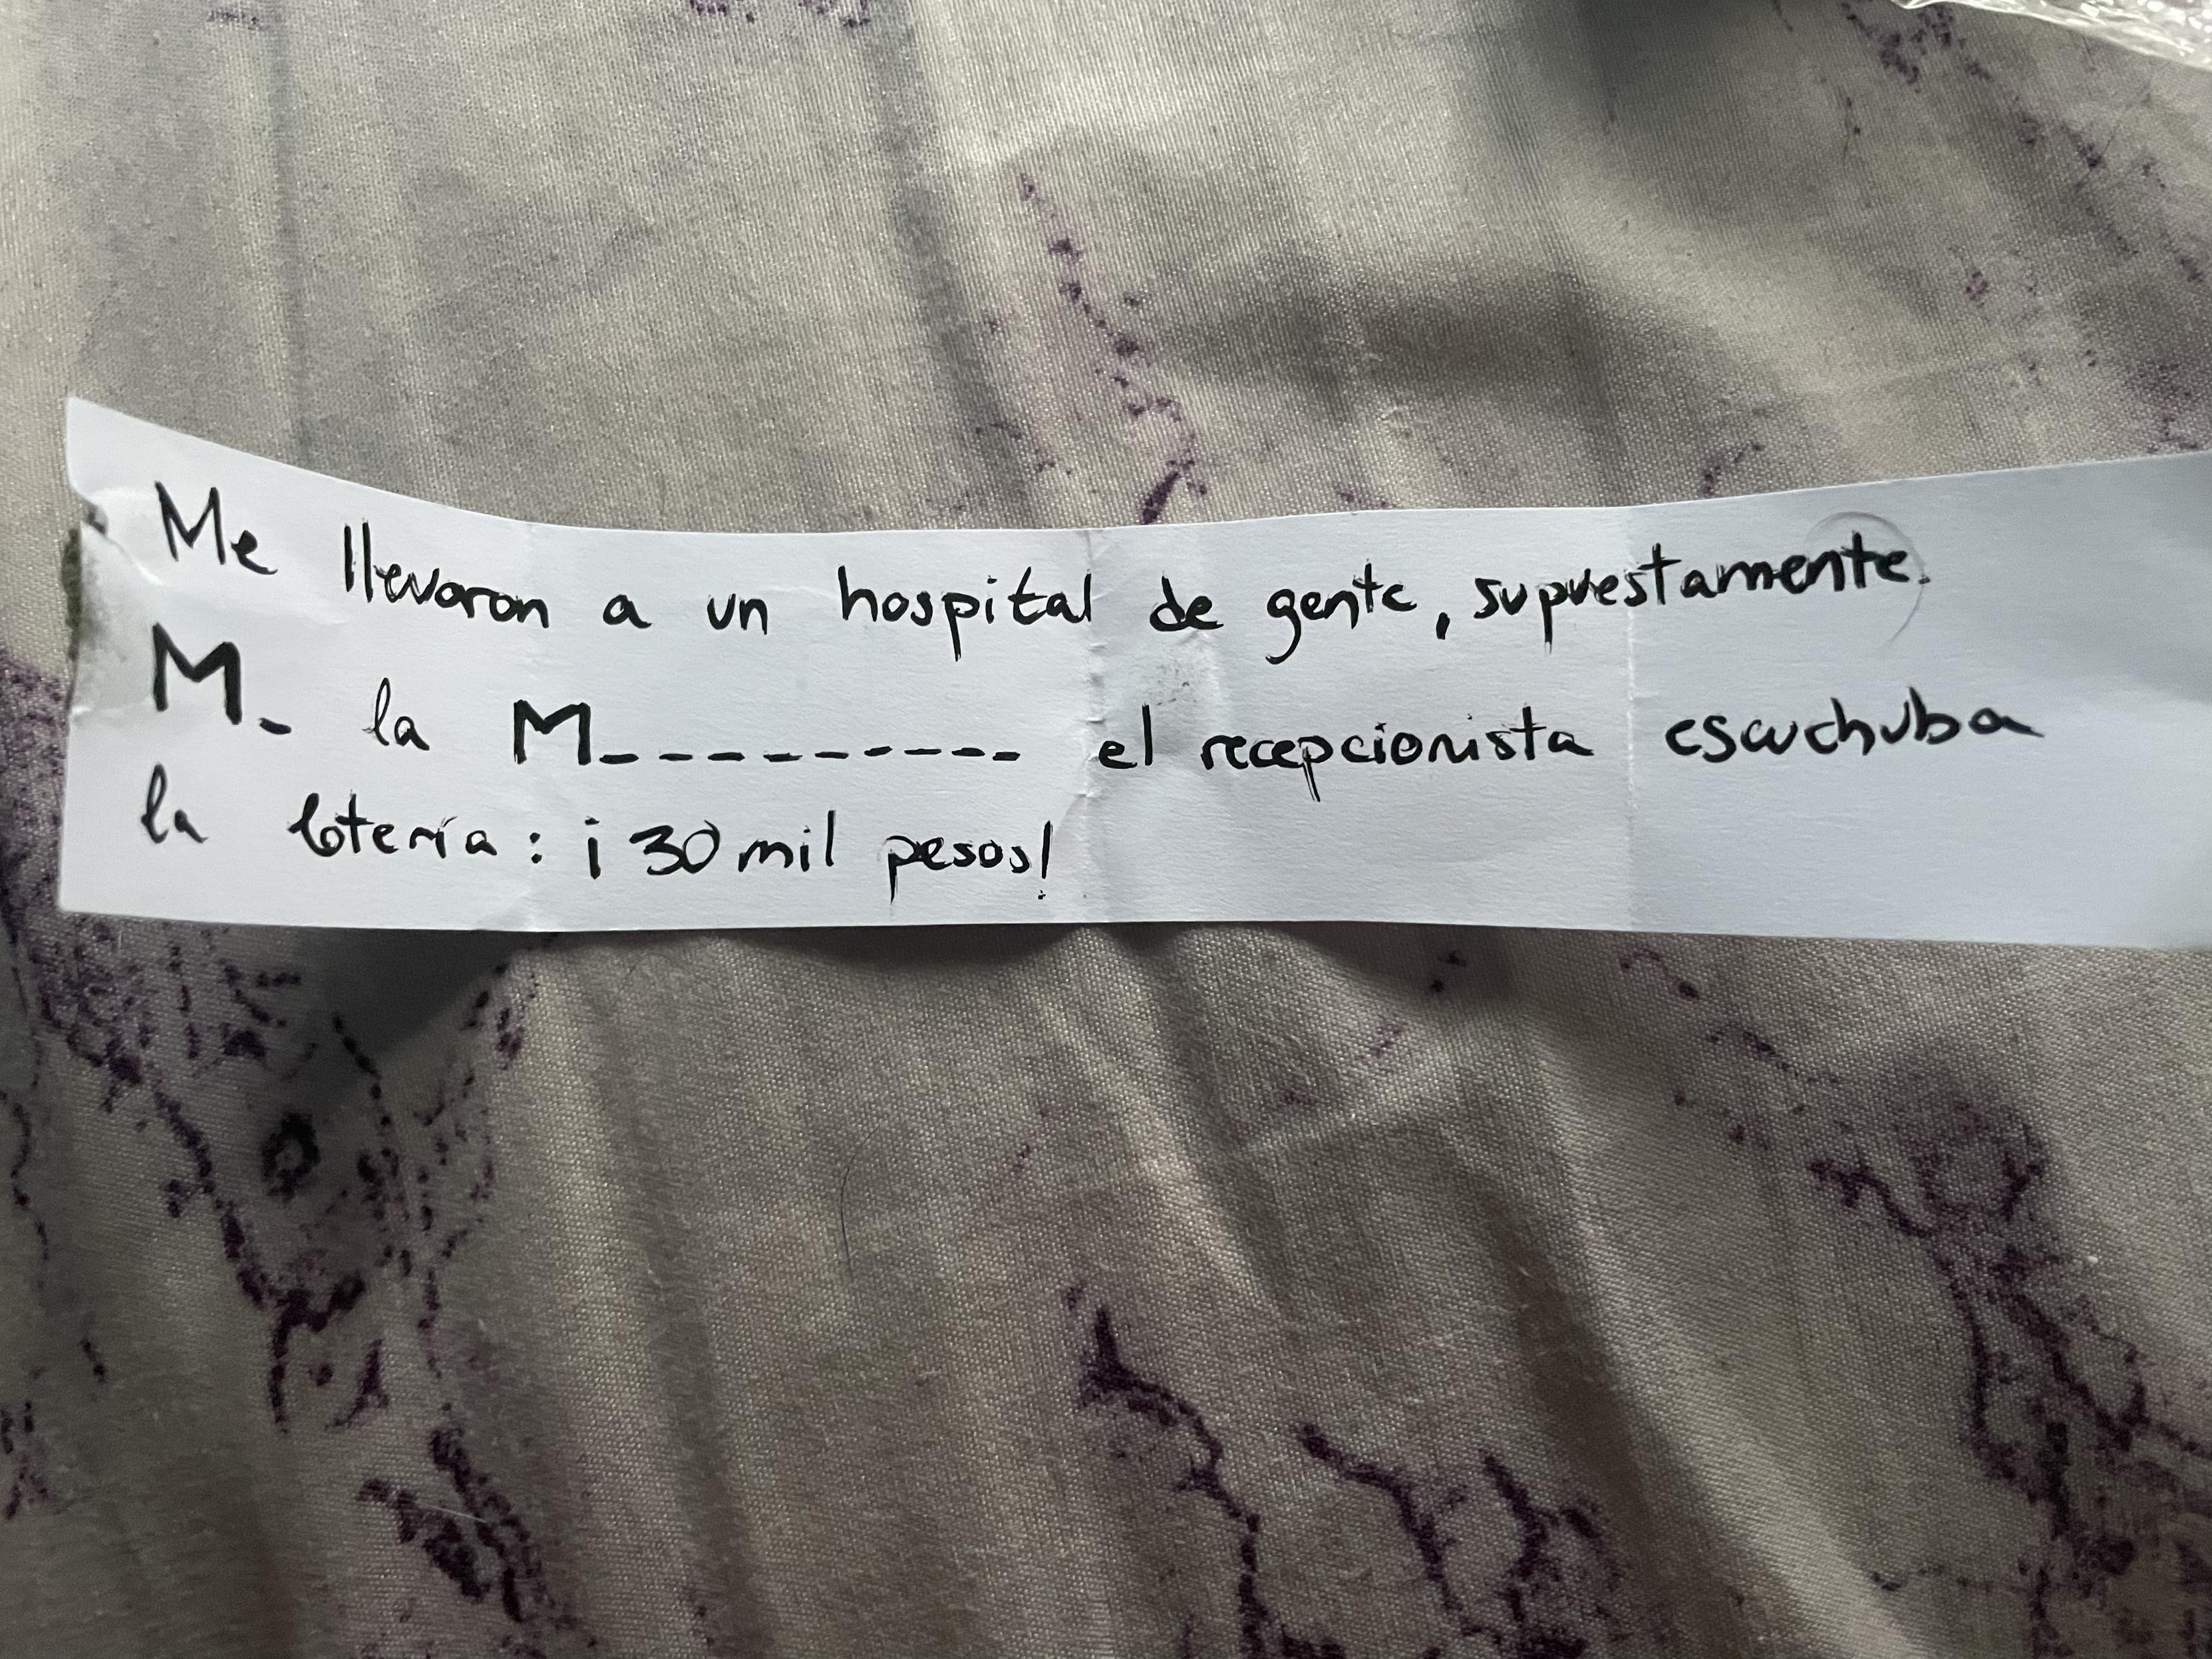 Me llevaron a un hospital de gente, supuestamente.
M_ la M___________ el recepcionista escuchaba
la lotería: ¡30 mil pesos!